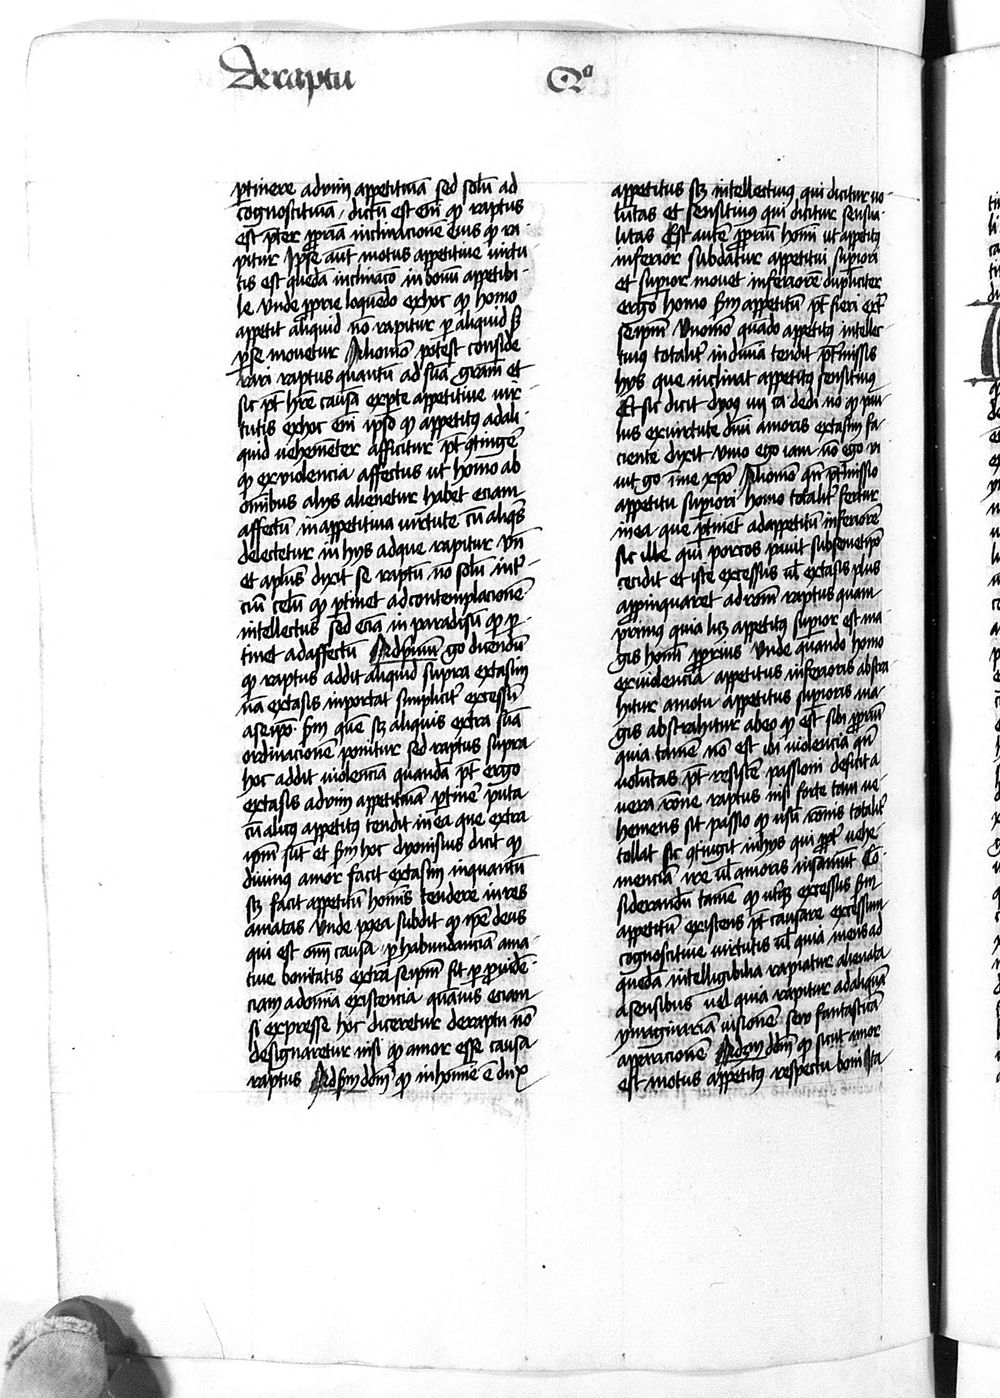 De raptu
Qo
ptinere ad vim appetitiuā sed solū ad
cognoscitiuā / dictū est em̄ qƺ raptus
est pter ppriā inclinacione eius qƺ ra-
pitur Ipse aūt motus appetitiue uirtu
tis est quedā inclinaco in bonū appetibi-
le vnde pprie loquēdo ex hoc qƺ homo
appetit aliquid nō rapitur ƺ aliquid sƺ
per se mouetur Alio modo potest conside
rari raptus quantū ad suā causam et
sic pt hre causā ex pte appetitiue uir
tutis ex hoc em̄ ipso qƺ appetitus ad ali-
quid uehemēter afficitur pt qtingē
qƺ ex violencia affectus ut homo ab
omnibus alijs alienetur habet eciam
affectū in appetitiua uirtute cū aliqs
delectetur in hijs ad que rapitur Vn̄
et aplus dixit se raptū nō solū ad ter-
ciū celū qƺ ptinet ad contemplacionē
intellectus sed eciā in paradisū qƺ p-
tinet ad affectū Ad primū go dicendū
qƺ raptus addit aliquid supra extasim
nā extasis inportat simpliciter excessū
a seipo ƺm quē sƺ aliquis extra suā
ordinacionē ponitur sed raptus supra
hoc addit uiolenciā quandā pt ergo
extasis ad vim appetitiuā ptinē puta
cū alicuius appetitus tendit in ea que extra
ipm sūt et ƺm hoc dyonisius dicit qƺ
diuinus amor facit extasim inquantū
sƺ facit appetitū hominis tendere in res
amatas vnde postea subdit qƺ ipe deus
qui est oīm causa per habundanciā ama-
tiue bonitatis extra seipm fit per prouidē-
ciam ad omnia existencia quāuis eciam
si expresse hoc diceretur de raptu nō
designaretur nisi qƺ amor esset causa
raptus Ad ƺm dōm qƺ in homine ē duplex
appetitus sƺ intellectiuus qui dicitur uo-
lūtas et sensitiuus qui dicitur sensua-
litas Est autē ppriū homī ut appetitus
inferior subdatur appetitui supiori
et supior moueat inferiorē dupliciter
ergo homo ƺm appetitū pt fieri extra
seipm Vno modo quādo appetitus intellec-
tiuus totaliter in diuina tendit ptermissis
hijs que inclinat appetitus sensitiuus
Et sic dicit dyonisius iiij ca de di no qƺ pau-
lus ex uirtute diuī amoris extasim fa-
ciente dixit viuo ego iam nō ego ui-
uit go in me xpo Alio modo qn ptermisso
appetitu supiori homo totaliter fertur
in ea que ptinet ad appetitū inferiorē
sic ille qui porcos pauit sub semetipso
cecidit et iste excessus uel extasis plus
appinquaret ad rōm raptus quam
primus quia sƺ appetitus supior est ma
gis homī pprius vnde quando homo
ex uiolencia appetitus inferioris abstra-
hitur a motu appetitus supioris ma-
gis abstrahitur ab eo qƺ est sibi ppriū
quia tamē nō est ibi uiolencia qn
uolūtas pt resistē passioni deficit a
uera rōne raptus nisi forte tam ve-
hemens sit passio qƺ usū rōnis totaliter
tollat sic qtingit in hijs qui ppter uehe-
menciā ire uel amoris insaniūt Co-
siderandū tamē qƺ uterqƺ excessus ƺm
appetitū existens pt causare excessum
cognoscitiue uirtutis uel quia mens ad
quedā intelligibilia rapiatur alienata
a sensibus uel quia rapitur ad aliquā
ymaginariā uisionē seu fantasticā
appariconē Ad 3m dōm qƺ sicut amor
est motus appetitus respectu boni Ita